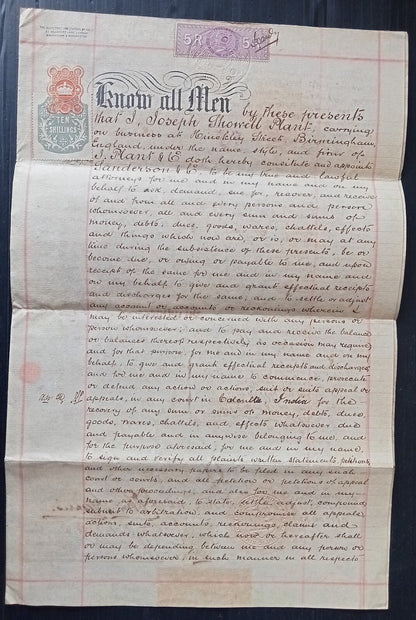 5 R
5
TEN
SHILLINGS
Know all Men by these presents
that I, Joseph Thorvill Plant, carrying
on business at Hinckley Street Birmingham,
England, under the name, style, and firm of
J. Plant & Co doth hereby constitute and appoint
Sanderson & Co to be my true and lawful
attorneys for me and in my name and on my
behalf to ask, demand, sue for, recover, and receive
of and from all and every persons and person
whomsoever all and every sum and sums of
money, debts, dues, goods, wares, chattels, effects
and things which now are, or is, or may at any
time during the subsistence of these presents, be or
become due, or owing or payable to me, and upon
receipt of the same for me and in my name and
on my behalf to give and grant effectual receipts
and discharges for the same; and to settle or adjust
any account or accounts or reckonings wherein I
may be interested or concerned with any persons or
person whomsoever; and to pay and receive the balance
or balances thereof respectively as occasion may require,
and for that purpose, for me and in my name and on my
behalf, to give and grant effectual receipts and discharges,
and for me and in my name to commence, prosecute
or defend any action or actions, suit or suits appeal or
appeals, in any court in Calcutta, India for the
recovery of any sum or sums of money, debts, dues
goods, wares, chattels, and effects whatsoever due
and payable and in anywise belonging to me, and
for the purpose aforesaid, for me and in my name,
to sign and verify all plaints written statements, petitions
and other necessary papers to be filed in any such
court or courts, and all petition or petitions of appeal
and other proceedings, and also for me and in my
name as aforesaid, to state, settle, adjust, compound
submit to arbitration, and compromise all appeals
actions, suits, accounts, reckonings, claims and
demands whatsoever, which now or hereafter shall
or may be depending between me and any person or
persons whomsoever, in such manner in all respects